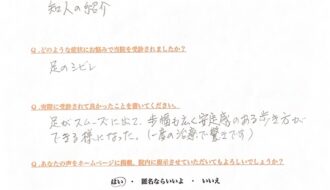 知人の紹介
Q.どのような症状にお悩みで当院を受診されましたか?
足のシビレ
Q.実際に受診されて良かったことを書いてください。
足がスムーズに出て、歩幅も広く安定感のある歩き方が
できる様になった。(一度の治療で驚きです)
Q.あなたの声をホームページに掲載、院内に掲示させていただいてもよろしいでしょうか?
はい ・ 匿名ならいいよ ・ いいえ